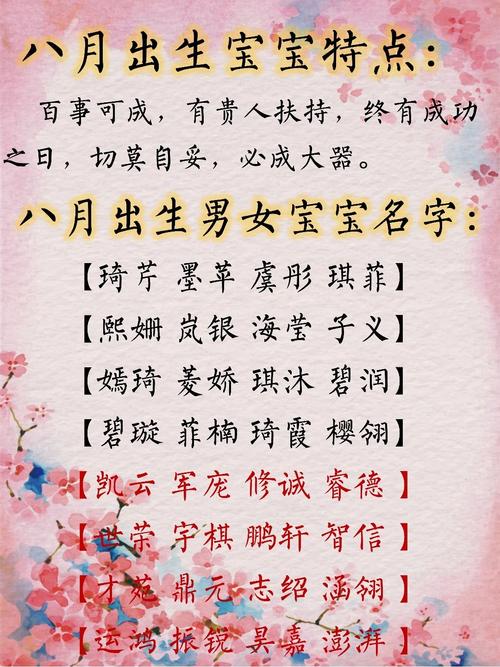 八月出生宝宝特点：
百事可成，有贵人扶持，终有成功
之日，切莫自妥，必成大器。
八月出生男女宝宝名字：
【琦芹 墨苹 虞彤 琪菲】
【熙姗 岚银 海莹 子义】
【嫣琦 菱娇 琪沐 碧润】
【碧璇 菲楠 琦霞 樱翎】
【凯云 军庞 修诚 睿德】
【世荣 宇棋 鹏轩 智信】
【才苑 鼎元 志绍 涵翎】
【运鸿 振锐 昊嘉 澎湃】